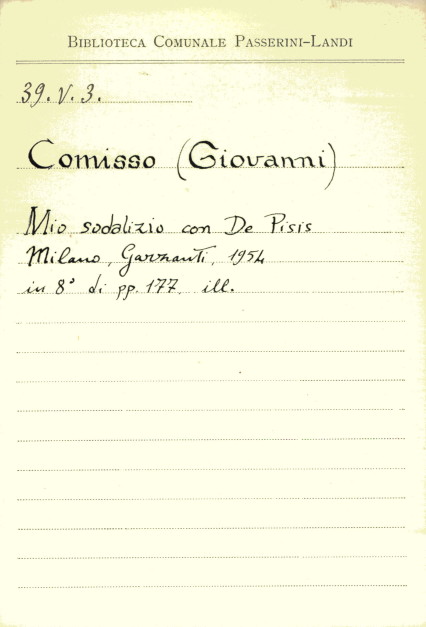 Biblioteca Comunale Passerini-Landi
39. V. 3.
Comisso (Giovanni)
Mio sodalizio con De Pisis
Milano, Garzanti, 1954
in 8° di pp. 177. ill.